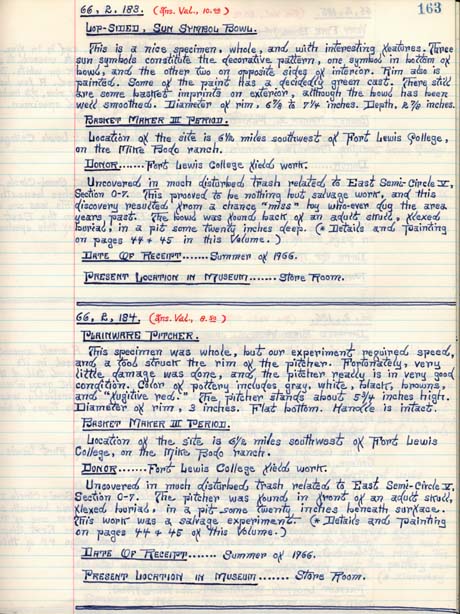 163
66, 2, 183. (Ins. Val., 10.00)
Lop-Sided, Sun Symbol Bowl.
This is a nice specimen, whole, and with interesting features. Three
sun symbols constitute the decorative pattern, one symbol in bottom of
bowl, and the other two on opposite sides of interior. Rim also is
painted. Some of the paint has a decidedly green cast. There still
are some basket imprints on exterior, although the bowl has been
well smoothed. Diameter of rim, 6 3/4 to 7 1/4 inches. Depth, 2 7/8 inches.
Basket Maker III Period.
Location of the site is 6 1/2 miles southwest of Fort Lewis College,
on the Mike Bodo ranch.
Donor......Fort Lewis College field work.
Uncovered in much disturbed trash related to East Semi-Circle V,
Section O-7. This prooved to be nothing but salvage work, and this
discovery resulted from a chance "miss" by who-ever dug the area
years past. The bowl was found back of an adult skull, flexed
burial, in a pit some twenty inches deep. (* Details and painting
on pages 44 + 45 in this Volume.)
Date Of Receipt.......Summer of 1966.
Present Location in Museum.......Store Room.
66, 2, 184. (Ins. Val., 8.00)
Plainware Pitcher.
This specimen was whole, but our experiment required speed,
and a tool struck the rim of the pitcher. Fortunately, very
little damage was done, and the pitcher really is in very good
condition. Color of pottery includes gray, white, black, browns,
and "fugitive red." The pitcher stands about 5 3/4 inches high.
Diameter of rim, 3 inches. Flat bottom. Handle is intact.
Basket Maker III Period.
Location of the site is 6 1/2 miles southwest of Fort Lewis
College, on the Mike Bodo ranch.
Donor.......Fort Lewis College field work.
Uncovered in much disturbed trash related to East Semi-Circle V,
Section O-7. The pitcher was found in front of an adult skull,
flexed burial, in a pit some twenty inches beneath surface.
This work was a salvage experiment. (* Details and painting
on pages 44 + 45 of this Volume.)
Date Of Receipt...... Summer of 1966.
Present Location in Museum....... Store Room.